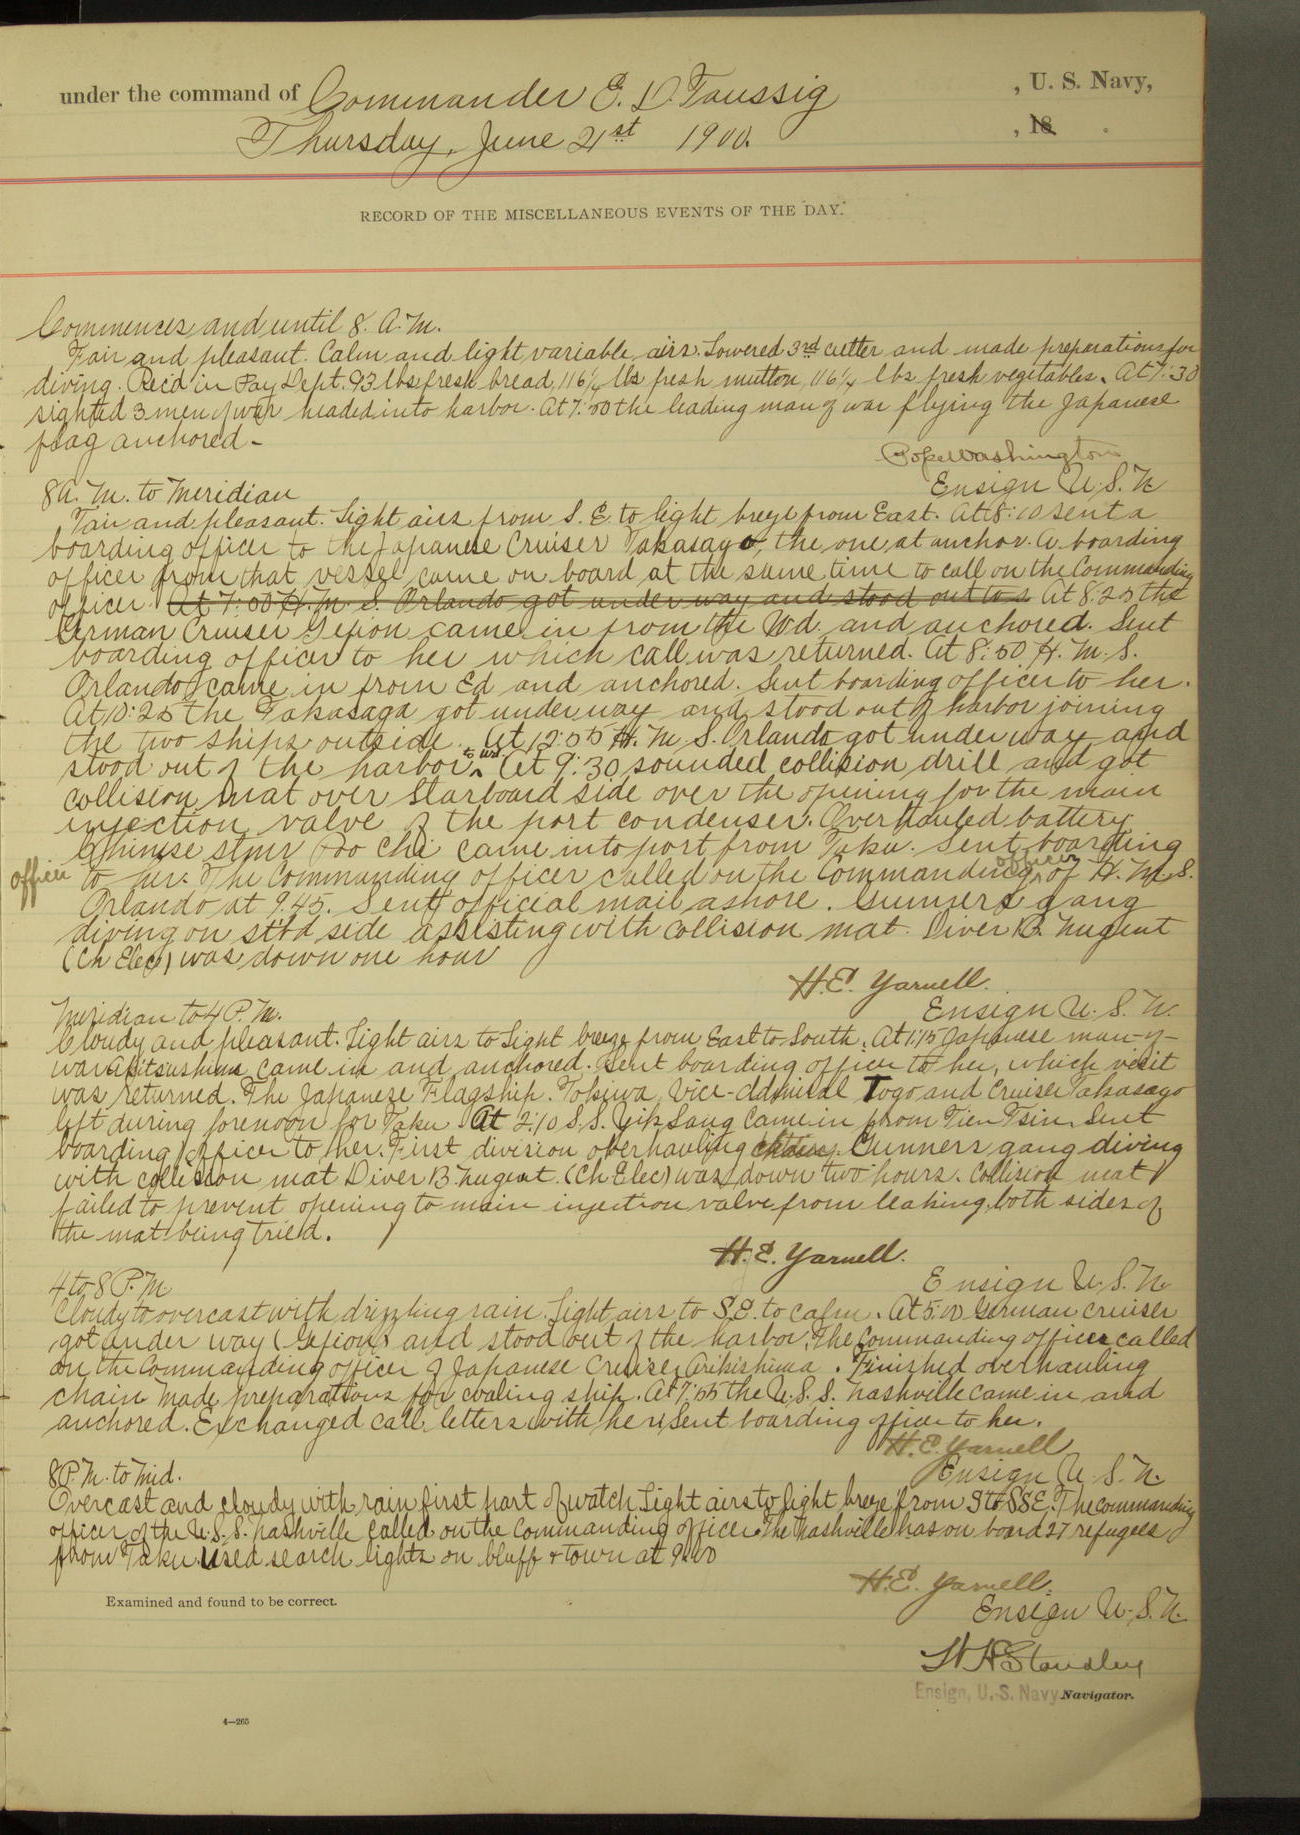 under the command of Commander E. D. Taussig , U. S. Navy,
Thursday, June 21st 1900. , 18 .
RECORD OF THE MISCELLANEOUS EVENTS OF THE DAY.
Commences and until 8. A.M.
Fair and pleasant. Calm and light variable airs. Lowered 3rd cutter and made preparations for
diving. Rec'd in Pay Dept. 93 lbs fresh bread, 116¼ lbs fresh mutton, 116¼ lbs fresh vegitables. At 7:30
sighted 3 men of war headed into harbor. At 7:50 the leading man of war flying the Japanese
flag anchored -
Pope Washington
Ensign U.S.N
8 A.M. to Meridian
Fair and pleasant. Light airs from S.E. to light breeze from East. At 8:10 sent a
boarding officer to the Japanese Cruiser Takasago, the one at anchor. A boarding
officer from that vessel came on board at the same time to call on the Commanding
officer. At 7:00 H.M.S. Orlando got under way and stood out to s At 8:25 the
German Cruiser Gefion came in from the Wd. and anchored. Sent
boarding officer to her which call was returned. At 8:50 H.M.S.
Orlando came in from Ed and anchored. Sent boarding officer to her.
At 10:25 the Takasaga got underway and stood out of harbor joining
the two ships outside. At 12:05 H.M.S. Orlando got under way and
stood out of the harbor to wd. At 9:30 sounded collision drill and got
collision mat over starboard side over the opening for the main
injection valve of the port condenser. Overhauled battery.
Chinese stmr Poo Chi came into port from Taku. Sent boarding
officer to her. The Commanding officer called on the Commanding officer of H.M.S.
Orlando at 9.45. Sent official mail ashore. Gunners gang
diving on stb'd side assisting with collision mat. Diver B. Nugent
(Ch Elec) was down one hour
H.E. Yarnell.
Ensign U.S.N.
Meridian to 4 P.M.
Cloudy and pleasant. Light airs to light breeze from East to South. At 1:15 Japanese man-of-
war came in and anchored. Sent boarding officer to her, which visit
was returned. The Japanese Flagship Tokiwa, Vice-Admiral Togo and Cruiser Takasago
left during forenoon for Taku. At 2:10 S.S. Yik Sang came in from Tien Tsin, sent
boarding officer to her. First division overhauling chains. Gunners gang diving
with collision mat Diver B. Nugent. (Ch Elec) was down two hours. Collision mat
failed to prevent opening to main injection valve from leaking, both sides of
the mat being tried.
H.E. Yarnell.
Ensign U.S.N.
4 to 8 P.M
Cloudy to overcast with drizzling rain. Light airs to S.E. to calm. At 5.00 German cruiser
got under way (Gefion) and stood out of the harbor. The Commanding officer called
on the Commanding officer of Japanese Cruiser. Finished overhauling
chain. Made preparations for coaling ship. At 7:55 the U.S.S. Nashville came in and
anchored. Exchanged call letters with her, sent boarding officer to her.
H.E. Yarnell
Ensign U.S.N.
8 P.M. to Mid.
Overcast and cloudy with rain first part of watch. Light airs to light breeze from S to SSE. The commanding
officer of the U.S.S. Nashville called on the Commanding officer. The Nashville has on board 27 refugees
from Taku. Used search lights on bluff & town at 9:00
H.E. Yarnell.
Ensign U.S.N.
Examined and found to be correct.
W H Standley
Ensign, U.S. Navy Navigator.
4—265